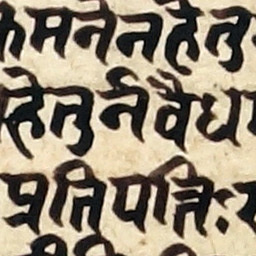 कमनेनहेतु
हेतुर्नवैध
प्रतिपत्तिः